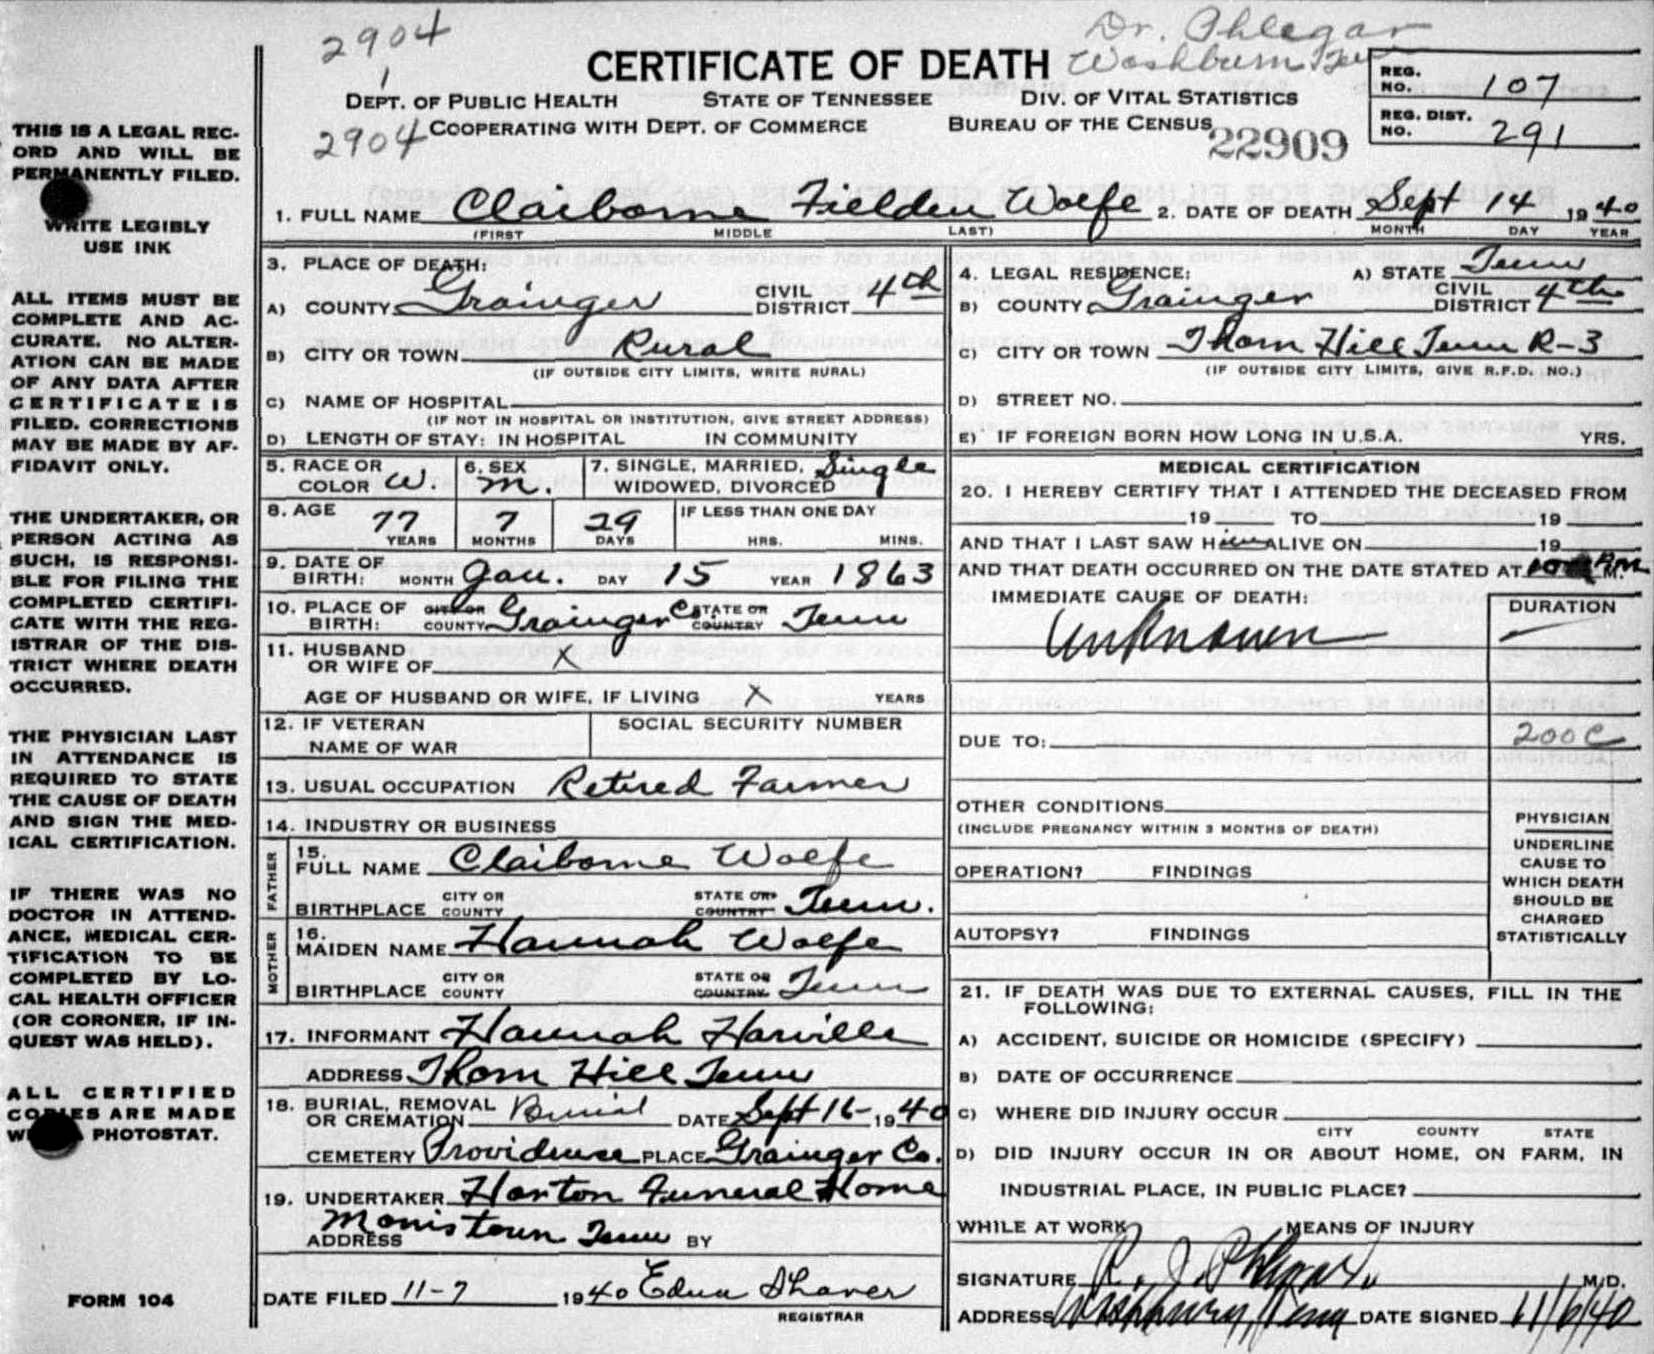 2904
1
Dr. Phlegar
CERTIFICATE OF DEATH Washburn Tenn
DEPT. OF PUBLIC HEALTH STATE OF TENNESSEE DIV. OF VITAL STATISTICS
2904 COOPERATING WITH DEPT. OF COMMERCE BUREAU OF THE CENSUS 22909
REG. NO. 107
REG. DIST. NO. 291
THIS IS A LEGAL REC-
ORD AND WILL BE
PERMANENTLY FILED.
WRITE LEGIBLY
USE INK
ALL ITEMS MUST BE
COMPLETE AND AC-
CURATE. NO ALTER-
ATION CAN BE MADE
OF ANY DATA AFTER
CERTIFICATE IS
FILED. CORRECTIONS
MAY BE MADE BY AF-
FIDAVIT ONLY.
THE UNDERTAKER, OR
PERSON ACTING AS
SUCH, IS RESPONSI-
BLE FOR FILING THE
COMPLETED CERTIFI-
CATE WITH THE REG-
ISTRAR OF THE DIS-
TRICT WHERE DEATH
OCCURRED.
THE PHYSICIAN LAST
IN ATTENDANCE IS
REQUIRED TO STATE
THE CAUSE OF DEATH
AND SIGN THE MED-
ICAL CERTIFICATION.
IF THERE WAS NO
DOCTOR IN ATTEND-
ANCE, MEDICAL CER-
TIFICATION TO BE
COMPLETED BY LO-
CAL HEALTH OFFICER
(OR CORONER, IF IN-
QUEST WAS HELD).
ALL CERTIFIED
COPIES ARE MADE
PHOTOSTAT.
FORM 104
1. FULL NAME Claiborne Fielden Wolfe 2. DATE OF DEATH Sept 14 1940
(FIRST MIDDLE LAST) MONTH DAY YEAR
3. PLACE OF DEATH:
A) COUNTY Grainger CIVIL DISTRICT 4th
B) CITY OR TOWN Rural
(IF OUTSIDE CITY LIMITS, WRITE RURAL)
C) NAME OF HOSPITAL
(IF NOT IN HOSPITAL OR INSTITUTION, GIVE STREET ADDRESS)
D) LENGTH OF STAY: IN HOSPITAL IN COMMUNITY
4. LEGAL RESIDENCE: A) STATE Tenn
B) COUNTY Grainger CIVIL DISTRICT 4th
C) CITY OR TOWN Thorn Hill Tenn R-3
(IF OUTSIDE CITY LIMITS, GIVE R.F.D. NO.)
D) STREET NO.
E) IF FOREIGN BORN HOW LONG IN U.S.A. YRS.
5. RACE OR COLOR W. 6. SEX M. 7. SINGLE, MARRIED, WIDOWED, DIVORCED Single
8. AGE 77 YEARS 7 MONTHS 29 DAYS IF LESS THAN ONE DAY HRS. MINS.
9. DATE OF BIRTH: MONTH Jan. DAY 15 YEAR 1863
10. PLACE OF BIRTH: CITY OR COUNTY Grainger Co STATE OR COUNTRY Tenn
11. HUSBAND OR WIFE OF X
AGE OF HUSBAND OR WIFE, IF LIVING X YEARS
12. IF VETERAN NAME OF WAR SOCIAL SECURITY NUMBER
13. USUAL OCCUPATION Retired Farmer
14. INDUSTRY OR BUSINESS
FATHER
15. FULL NAME Claiborne Wolfe
BIRTHPLACE CITY OR COUNTY STATE OR COUNTRY Tenn.
MOTHER
16. MAIDEN NAME Hannah Wolfe
BIRTHPLACE CITY OR COUNTY STATE OR COUNTRY Tenn
17. INFORMANT Hannah Harville
ADDRESS Thorn Hill Tenn
18. BURIAL, REMOVAL OR CREMATION Burial DATE Sept 16-1940
CEMETERY Providence PLACE Grainger Co.
19. UNDERTAKER Horton Funeral Home
ADDRESS Morristown Tenn BY
DATE FILED 11-7 1940 Edna Shaver
REGISTRAR
MEDICAL CERTIFICATION
20. I HEREBY CERTIFY THAT I ATTENDED THE DECEASED FROM
19 TO 19
AND THAT I LAST SAW Him ALIVE ON 19
AND THAT DEATH OCCURRED ON THE DATE STATED AT 10 PM
IMMEDIATE CAUSE OF DEATH: DURATION
Unknown
DUE TO: 200C
OTHER CONDITIONS
(INCLUDE PREGNANCY WITHIN 3 MONTHS OF DEATH)
OPERATION? FINDINGS
AUTOPSY? FINDINGS
PHYSICIAN
UNDERLINE
CAUSE TO
WHICH DEATH
SHOULD BE
CHARGED
STATISTICALLY
21. IF DEATH WAS DUE TO EXTERNAL CAUSES, FILL IN THE
FOLLOWING:
A) ACCIDENT, SUICIDE OR HOMICIDE (SPECIFY)
B) DATE OF OCCURRENCE
C) WHERE DID INJURY OCCUR
CITY COUNTY STATE
D) DID INJURY OCCUR IN OR ABOUT HOME, ON FARM, IN
INDUSTRIAL PLACE, IN PUBLIC PLACE?
WHILE AT WORK MEANS OF INJURY
SIGNATURE R. J. Phlegar M.D.
ADDRESS Washburn, Tenn DATE SIGNED 11/6/40